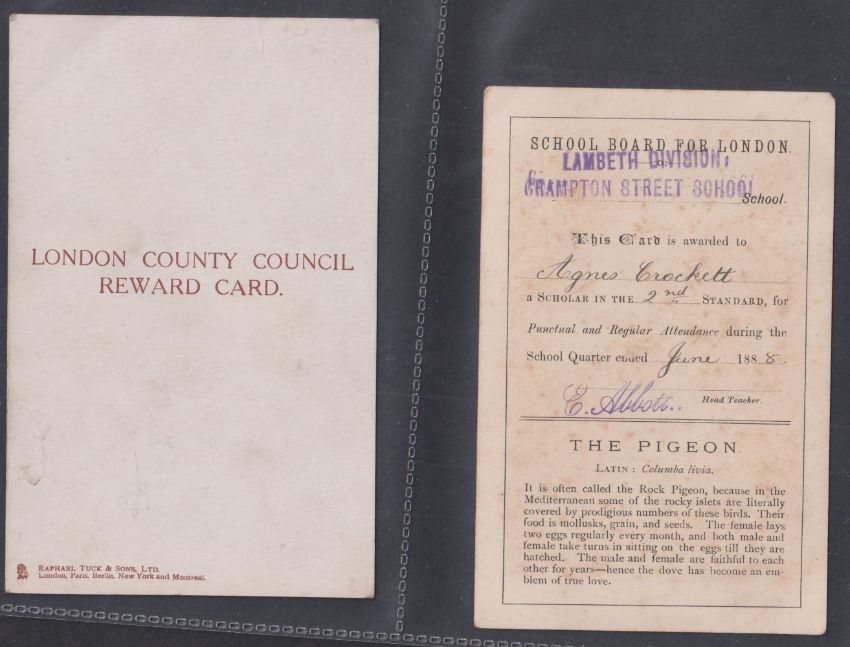 LONDON COUNTY COUNCIL
REWARD CARD.
RAPHAEL TUCK & SONS, LTD.
London, Paris, Berlin, New York and Montreal.
SCHOOL BOARD FOR LONDON.
LAMBETH DIVISION,
CRAMPTON STREET SCHOOL
School.
This Card is awarded to
Agnes Crockett
a SCHOLAR IN THE 2nd STANDARD, for
Punctual and Regular Attendance during the
School Quarter ended June 1888.
E. Abbott. Head Teacher.
THE PIGEON.
LATIN: Columba livia.
It is often called the Rock Pigeon, because in the
Mediterranean some of the rocky islets are literally
covered by prodigious numbers of these birds. Their
food is mollusks, grain, and seeds. The female lays
two eggs regularly every month, and both male and
female take turns in sitting on the eggs till they are
hatched. The male and female are faithful to each
other for years—hence the dove has become an em-
blem of true love.